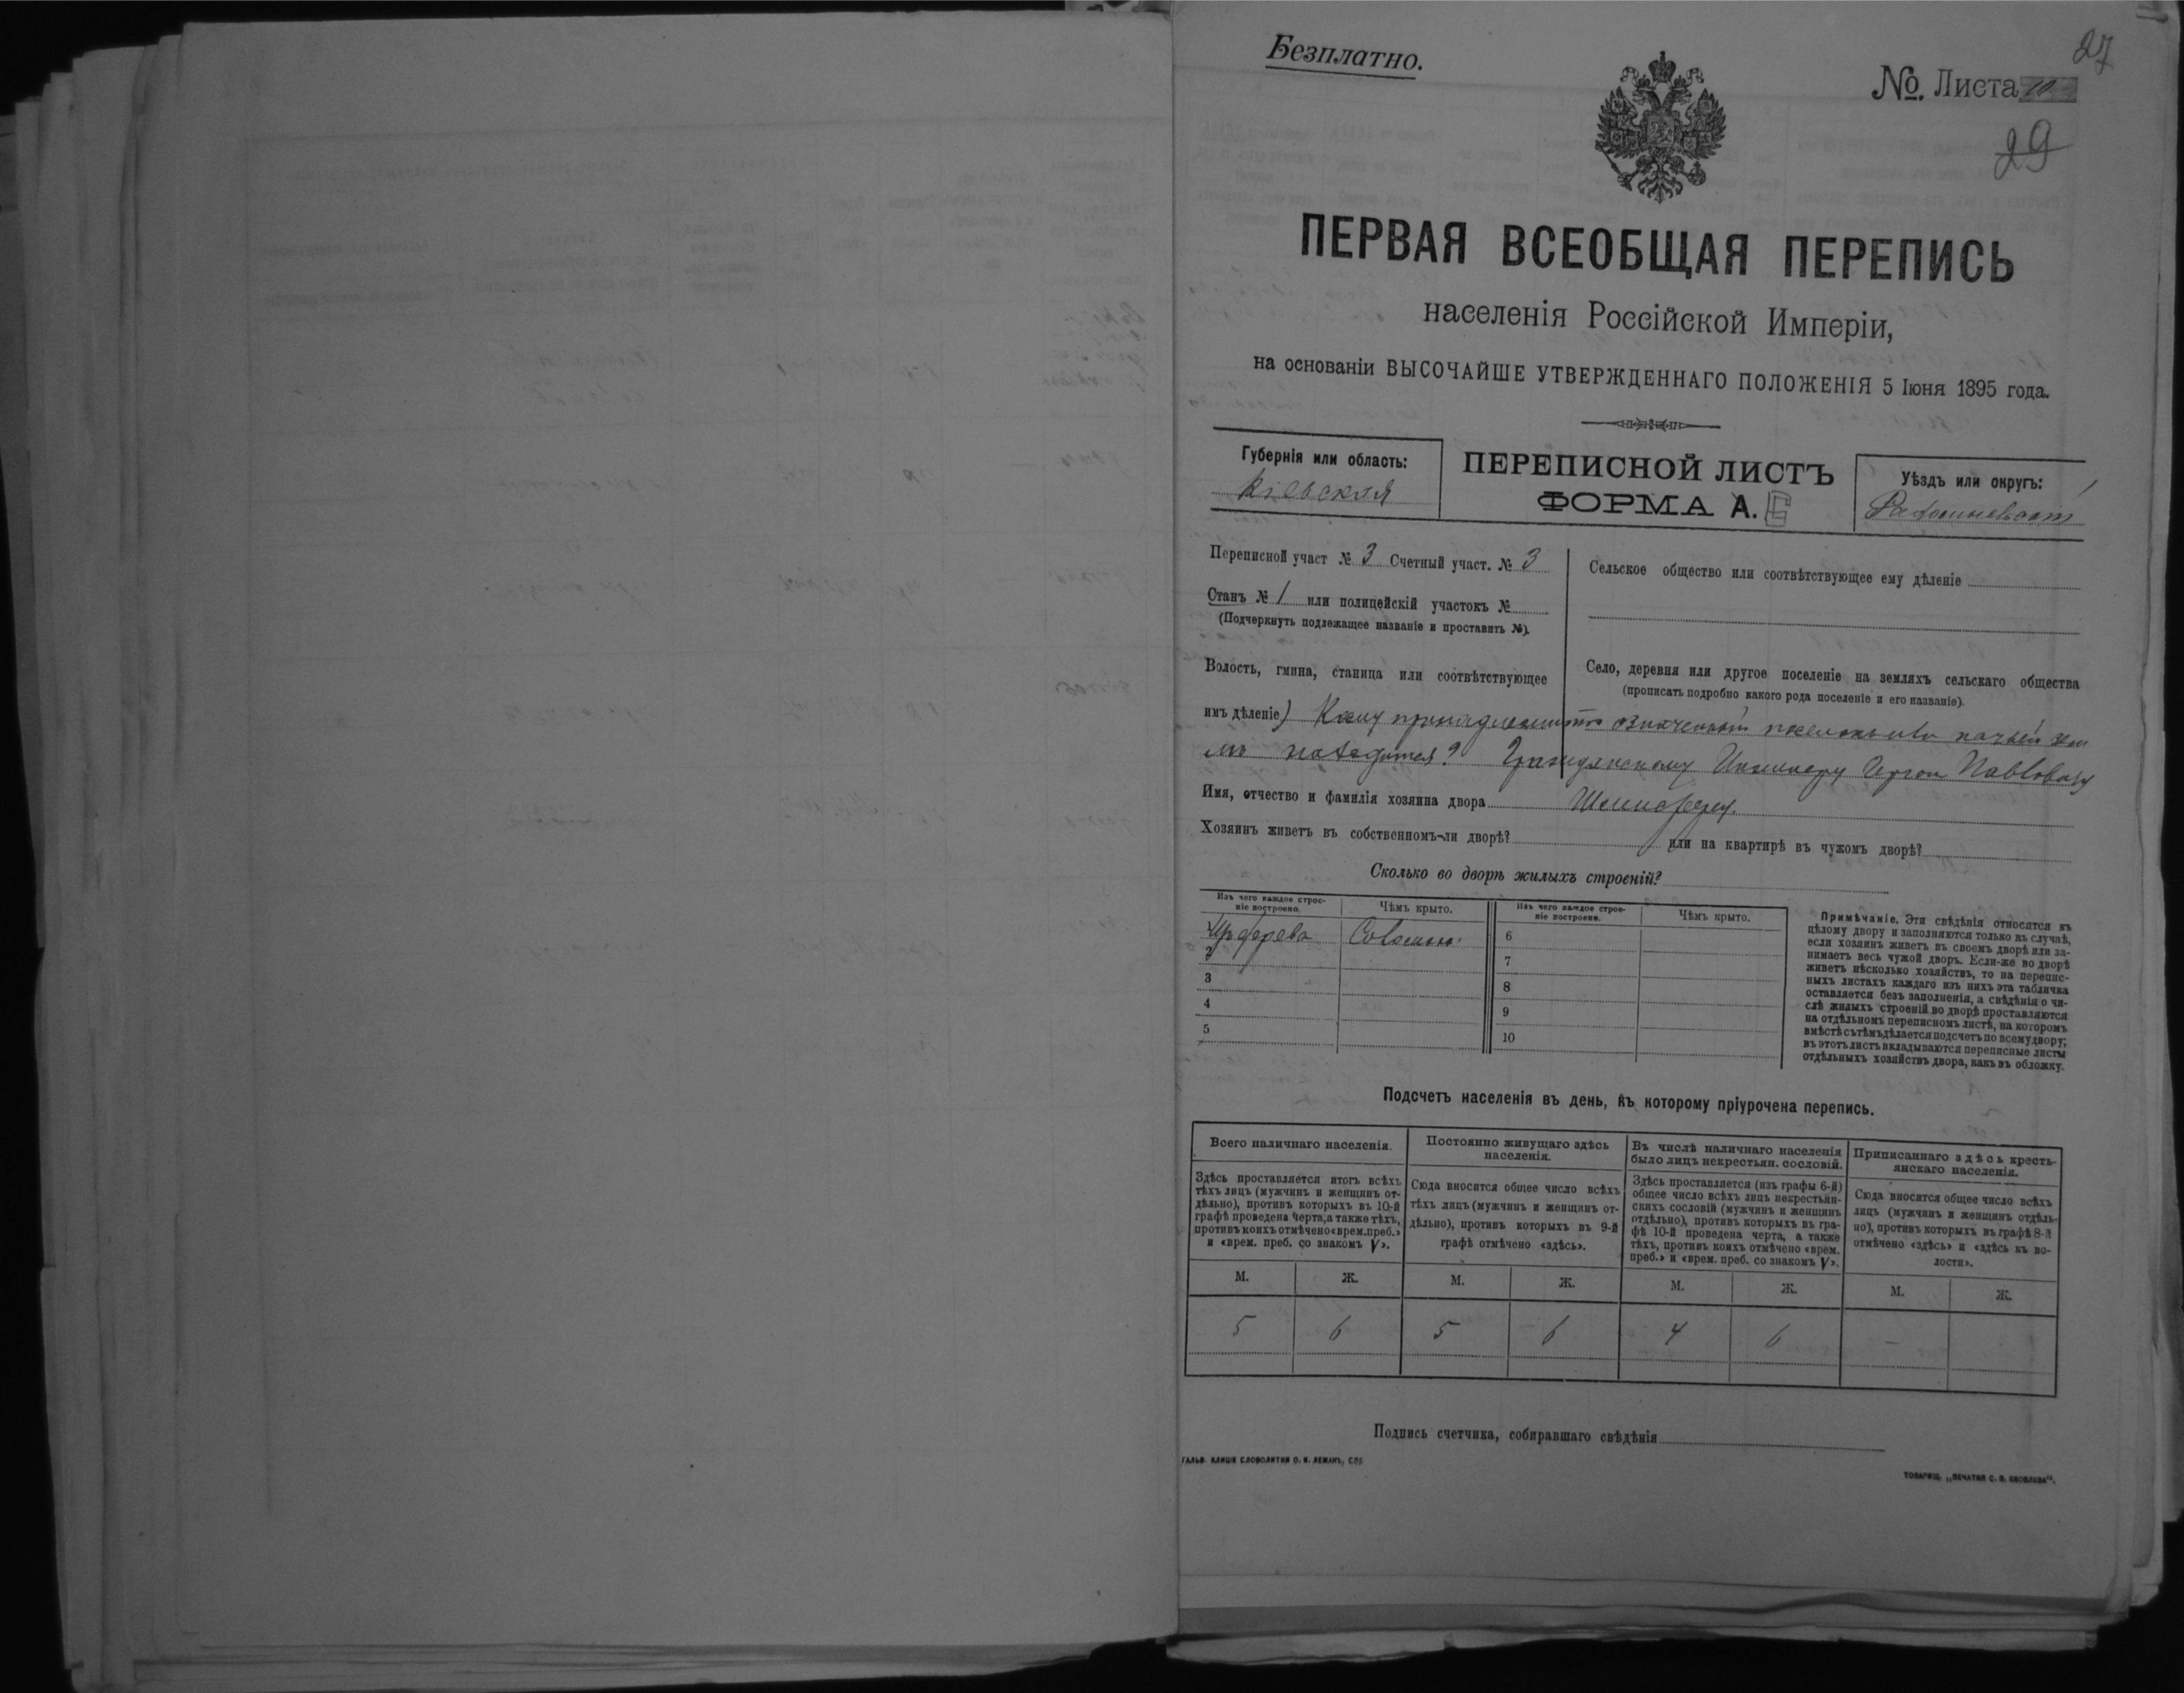 Безплатно.
27
№ Листа 10
29
ПЕРВАЯ ВСЕОБЩАЯ ПЕРЕПИСЬ
населенія Россійской Имперіи,
на основаніи ВЫСОЧАЙШЕ УТВЕРЖДЕННАГО ПОЛОЖЕНІЯ 5 Іюня 1895 года.
Губернія или область:
Кіевская
ПЕРЕПИСНОЙ ЛИСТЪ
ФОРМА А.
Уѣздъ или округъ:
Переписной участ № 3 Счетный участ. № 3
Станъ № 1 или полицейскій участокъ №
(Подчеркнуть подлежащее названіе и проставить №).
Волость, гмина, станица или соотвѣтствующее
имъ дѣленіе)
Сельское общество или соотвѣтствующее ему дѣленіе
Село, деревня или другое поселеніе на земляхъ сельскаго общества
(прописать подробно какого рода поселеніе и его названіе).
Кому принадлежитъ означенный поселокъ или на чьей зем
лѣ находится? Гражданскому Инженеру Павловичу
Имя, отчество и фамилія хозяина двора
Хозяинъ живетъ въ собственномъ-ли дворѣ? или на квартирѣ въ чужомъ дворѣ?
Сколько во дворѣ жилыхъ строеній?
Изъ чего каждое строе-
ніе построено.
Чѣмъ крыто.
Изъ чего каждое строе-
ніе построено.
Чѣмъ крыто.
дерева Соломою
2
3
4
5
6
7
8
9
10
Примѣчаніе. Эти свѣдѣнія относятся къ
цѣлому двору и заполняются только въ случаѣ,
если хозяинъ живетъ въ своемъ дворѣ или за-
нимаетъ весь чужой дворъ. Если-же во дворѣ
живетъ нѣсколько хозяйствъ, то на перепис-
ныхъ листахъ каждаго изъ нихъ эта табличка
оставляется безъ заполненія, а свѣдѣнія о чи-
слѣ жилыхъ строеній во дворѣ проставляются
на отдѣльномъ переписномъ листѣ, на которомъ
вмѣстѣ съ тѣмъ дѣлается подсчетъ по всему двору;
въ этотъ листъ вкладываются переписные листы
отдѣльныхъ хозяйствъ двора, какъ въ обложку.
Подсчетъ населенія въ день, къ которому пріурочена перепись.
Всего наличнаго населенія.
Здѣсь проставляется итогъ всѣхъ
тѣхъ лицъ (мужчинъ и женщинъ от-
дѣльно), противъ которыхъ въ 10-й
графѣ проведена черта, а также тѣхъ,
противъ коихъ отмѣчено «врем. преб.»
и «врем. преб. со знакомъ V».
Постоянно живущаго здѣсь
населенія.
Сюда вносится общее число всѣхъ
тѣхъ лицъ (мужчинъ и женщинъ от-
дѣльно), противъ которыхъ въ 9-й
графѣ отмѣчено «здѣсь».
Въ числѣ наличнаго населенія
было лицъ некрестьян. сословій.
Здѣсь проставляется (изъ графы 6-й)
общее число всѣхъ лицъ некрестьян-
скихъ сословій (мужчинъ и женщинъ
отдѣльно), противъ которыхъ въ гра-
фѣ 10-й проведена черта, а также
тѣхъ, противъ коихъ отмѣчено «врем.
преб.» и «врем. преб. со знакомъ V».
Приписаннаго здѣсь кресть-
янскаго населенія.
Сюда вносится общее число всѣхъ
лицъ (мужчинъ и женщинъ отдѣль-
но), противъ которыхъ въ графѣ 8-й
отмѣчено «здѣсь» и «здѣсь къ во-
лости».
М. Ж. М. Ж. М. Ж. М. Ж.
5 6 5 6 4 6 –
Подпись счетчика, собиравшаго свѣдѣнія
ГАЛЬВ. КЛИШЕ СЛОВОЛИТНИ О. И. ЛЕМАНЪ, СПБ
ТОВАРИЩ. „ПЕЧАТНЯ С. П. ЯКОВЛЕВА“.